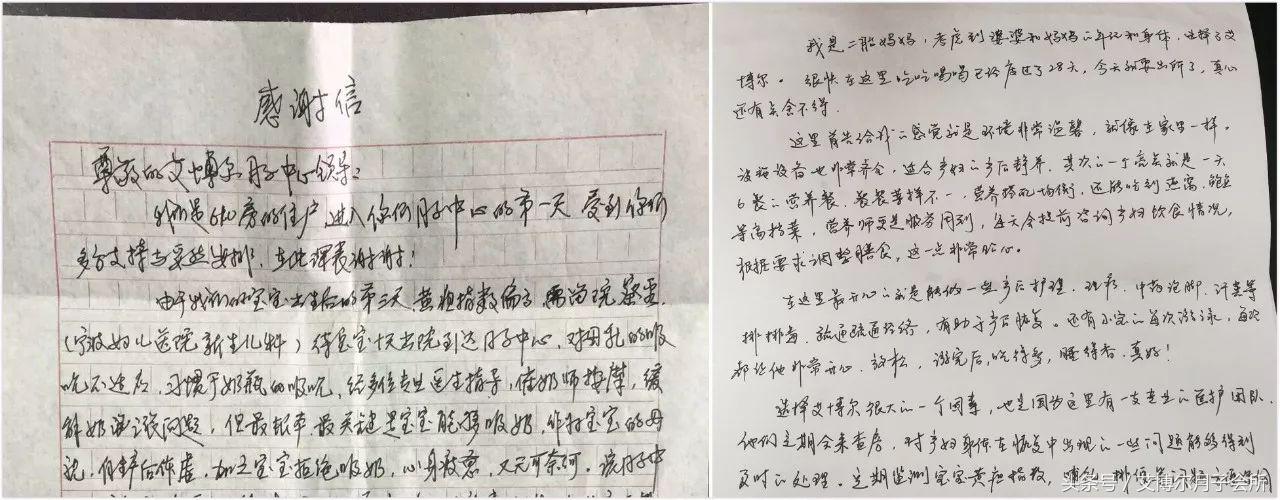 感谢信
尊敬的艾博尔月子中心领导:
我们是610房的住户 进入你们月子中心的第一天 受到你们
多方支持与妥然安排,在此深表谢谢!
由于我们的宝宝出生后的第三天,黄疸指数偏高 需尚院
(宁波妇儿医院新生儿科)待宝宝十天出院到达月子中心,对母乳的吸
吮不适应,习惯于奶瓶的吸吮,经多位专业医生指导,催奶师按摩,缓
解奶涨问题,但最根本最关键是宝宝能够吸奶,作为宝宝的母
亲,自产后体虚,加之宝宝拒绝吸奶,心身疲惫,又无可奈何,该月子中
我是二胎妈妈,考虑到婆婆和妈妈的年纪和身体,选择了艾
博尔。很快在这里吃吃喝喝已经度过了28天,今天就要出所了,真心
还有点舍不得。
这里首先给我的感觉就是环境非常温馨,就像在家里一样。
设施设备也非常齐全,适合产妇的产后静养。其次的一个亮点就是一天
6餐的营养餐,餐餐菜样不一,营养搭配均衡,还能吃到燕窝、鲍鱼
等高档菜,营养师更是服务周到,每天会提前咨询产妇饮食情况,
根据要求调整膳食,这一点非常贴心。
在这里最开心的就是能做一些产后护理,理疗,中药泡脚、汗蒸等
排排毒,疏通疏通经络,有助于产后恢复。还有小宝的每次游泳,每次
都让他非常开心、放松,游完后,吃得多,睡得香,真好!
选择艾博尔很大的一个因素,也是因为这里有一支专业的医护团队,
他们定期会来查房,对产妇身体在恢复中出现的一些问题能够得到
及时的处理。定期监测宝宝黄疸指数,
头条号/艾博尔月子会所